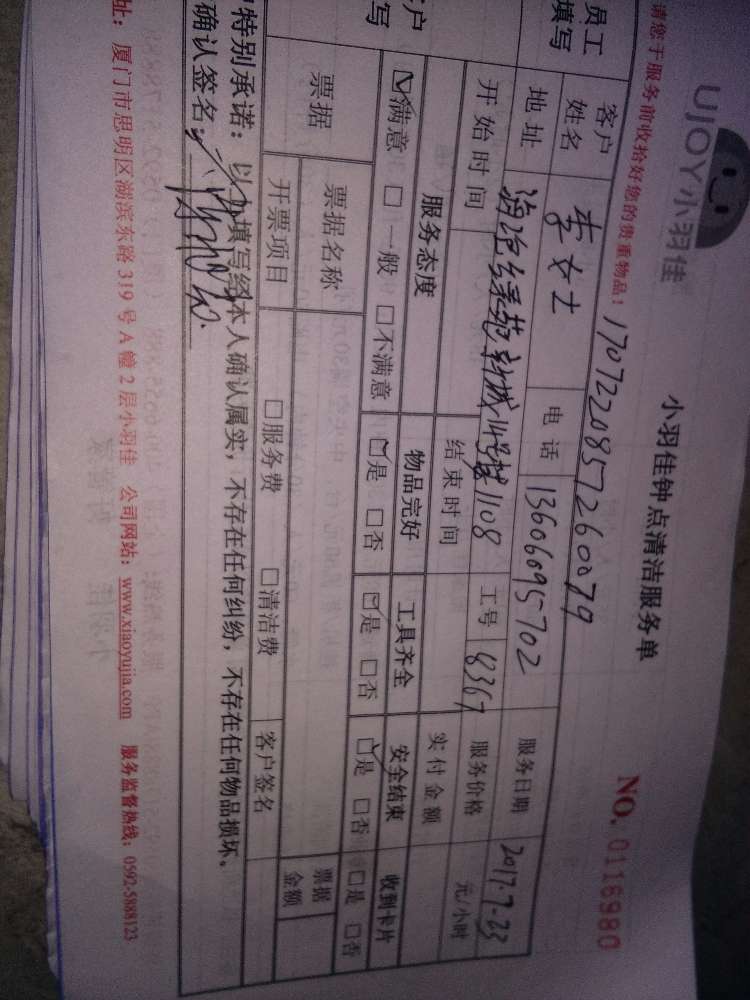 UJOY小羽佳
小羽佳钟点清洁服务单
NO. 0116980
请您于服务前收拾好您的贵重物品！ 1707220857260079
员工填写
客户姓名 李女士 电话 13606095702 服务日期 2017.7-23
地址 海沧绿苑新城 1108 工号 8367 服务价格 元/小时
开始时间 结束时间 实付金额
客户填写
服务态度 物品完好 工具齐全 安全结束 收到卡片
☑满意 □一般 □不满意 ☑是 □否 ☑是 □否 ☑是 □否 □是 □否
票据 票据名称 票据金额
开票项目 □服务费 □清洁费 客户签名
特别承诺：以上填写经本人确认属实，不存在任何纠纷，不存在任何物品损坏。
确认签名：
址：厦门市思明区湖滨东路 319 号 A 幢 2 层小羽佳 公司网站：www.xiaoyujia.com 服务监督热线：0592-5888123